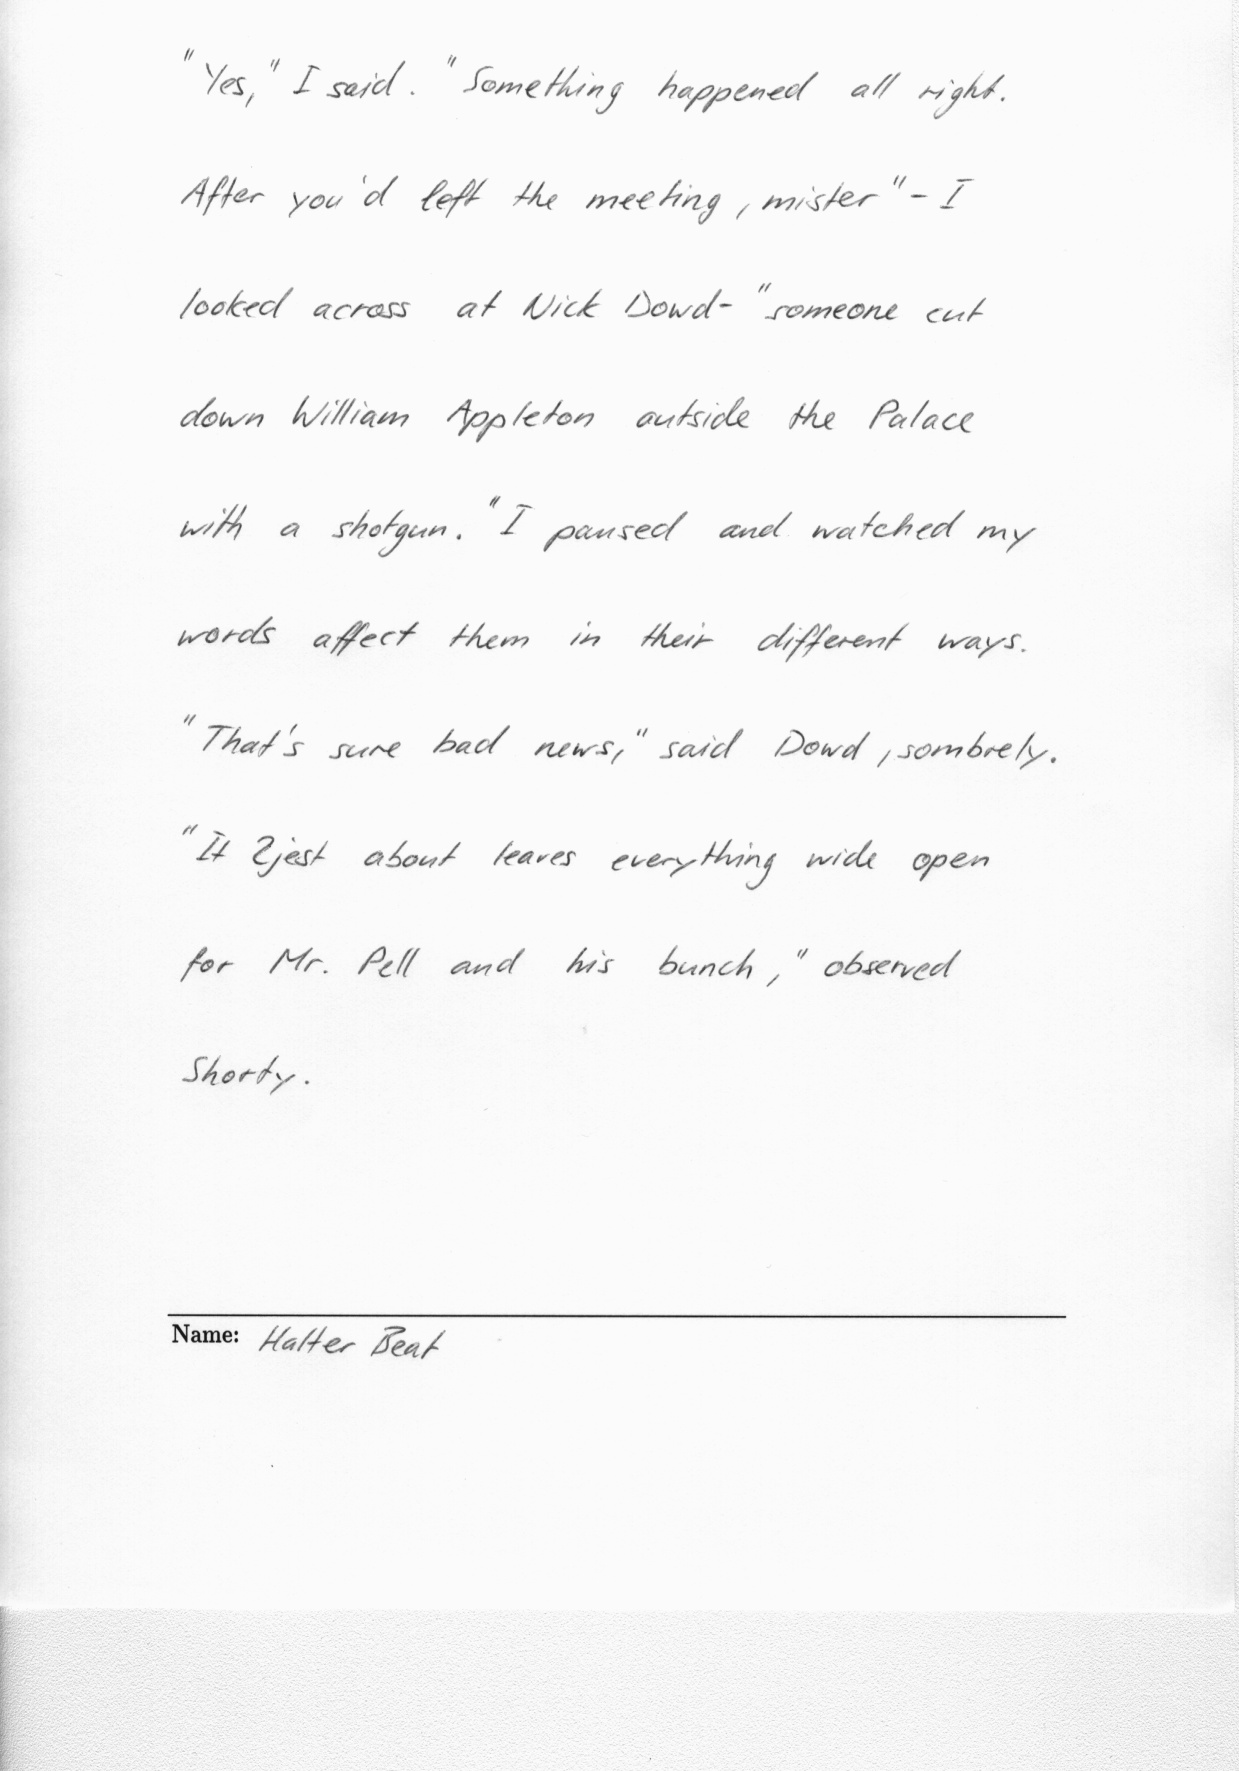 "Yes," I said. "Something happened all right.
After you'd left the meeting, mister" - I
looked across at Nick Dowd- "someone cut
down William Appleton outside the Palace
with a shotgun. "I paused and watched my
words affect them in their different ways.
"That's sure bad news," said Dowd, sombrely.
"It 2jest about leaves everything wide open
for Mr. Pell and his bunch," observed
Shorty.
Name: Halter Beat